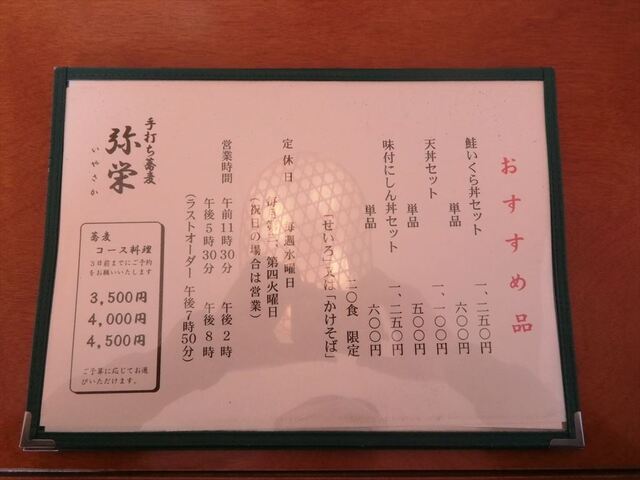 おすすめ品
鮭いくら丼セット 一、二五〇円
単品 六〇〇円
天丼セット 一、一〇〇円
単品 五〇〇円
味付にしん丼セット 一、二五〇円
単品 六〇〇円
二〇食 限定
「せいろ」又は「かけそば」
定休日 毎週水曜日
毎月第二、第四火曜日
(祝日の場合は営業)
営業時間 午前11時30分 午後2時
午後5時30分 午後8時
(ラストオーダー 午後7時50分)
手打ち蕎麦
弥栄
いやさか
蕎麦
コース料理
3日前までにご予約
をお願いいたします
3,500円
4,000円
4,500円
ご予算に応じてお選
びいただけます。